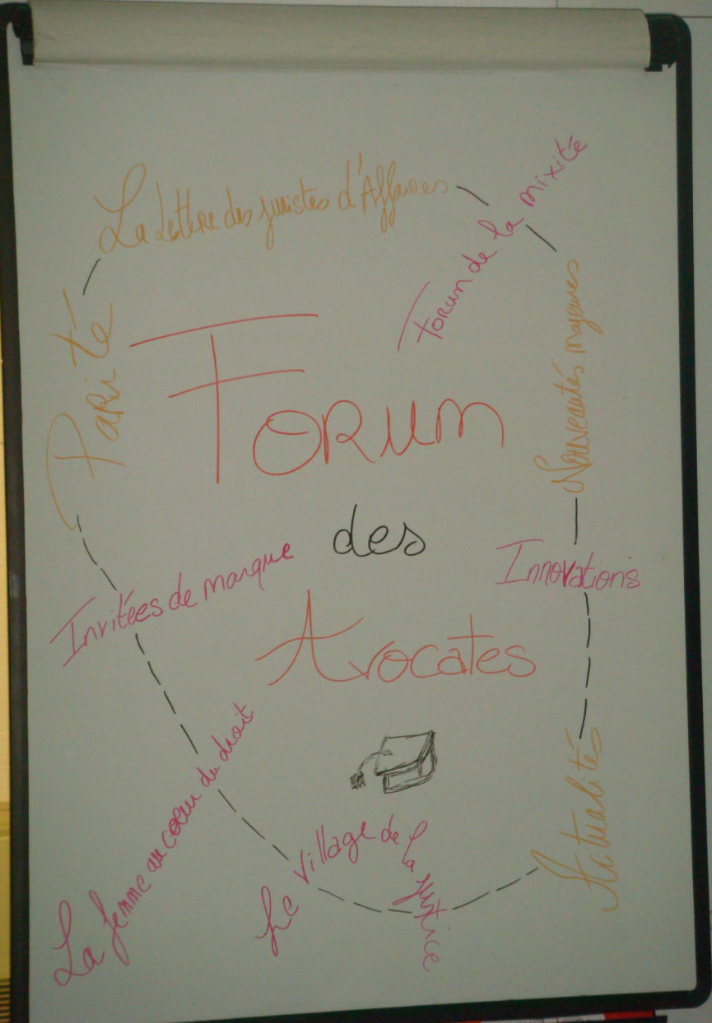 La Lettre des juristes d'Affaires
Forum de la mixité
Parité
Nouveautés majeures
Forum
des
Avocates
Invitées de marque
Innovations
Actualités
La femme au coeur du droit
Le village de la justice